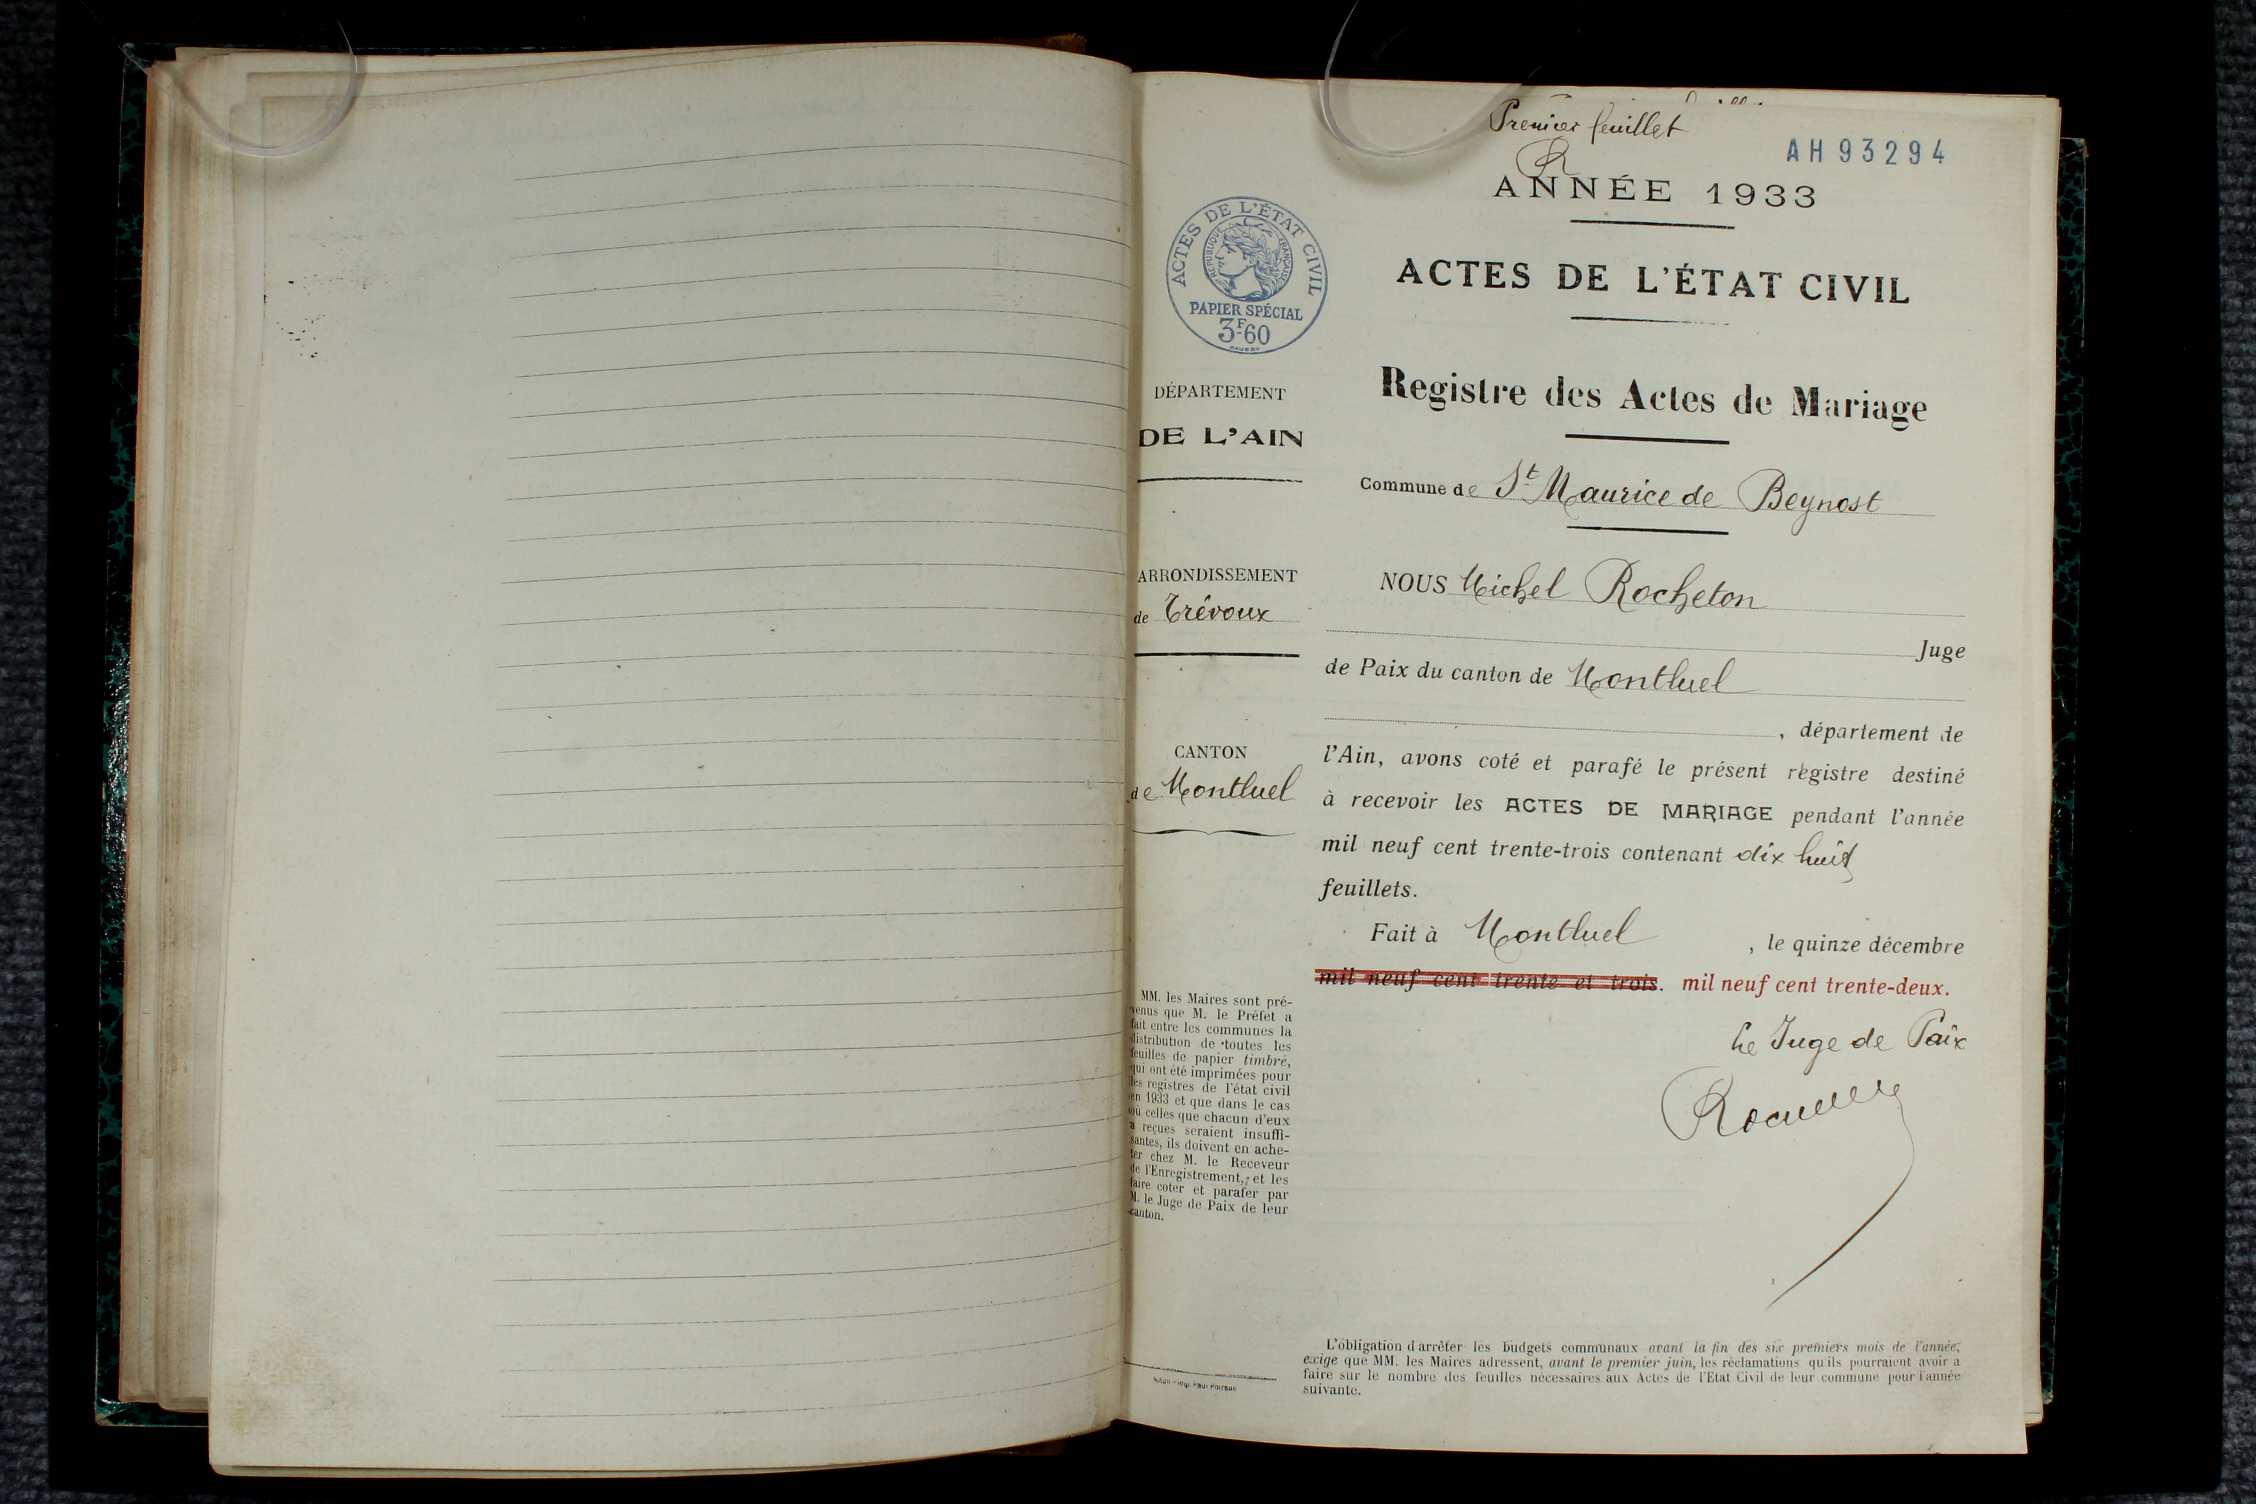 Premier feuillet
AH 93294
ANNÉE 1933
ACTES DE L'ÉTAT CIVIL
RÉPUBLIQUE FRANÇAISE
PAPIER SPÉCIAL
3F60
ACTES DE L'ÉTAT CIVIL
Registre des Actes de Mariage
DÉPARTEMENT
DE L'AIN
Commune de St Maurice de Beynost
ARRONDISSEMENT
de Trévoux
CANTON
de Montluel
NOUS Michel Rocheton
Juge
de Paix du canton de Montluel
, département de
l'Ain, avons coté et parafé le présent registre destiné
à recevoir les ACTES DE MARIAGE pendant l'année
mil neuf cent trente-trois contenant dix huit
feuillets.
Fait à Montluel , le quinze décembre
mil neuf cent trente et trois. mil neuf cent trente-deux.
Le Juge de Paix
MM. les Maires sont pré-
venus que M. le Préfet a
fait entre les communes la
distribution de toutes les
feuilles de papier timbré,
qui ont été imprimées pour
les registres de l'état civil
en 1933 et que dans le cas
où celles que chacun d'eux
a reçues seraient insuffi-
santes, ils doivent en ache-
ter chez M. le Receveur
de l'Enregistrement, et les
faire coter et parafer par
M. le Juge de Paix de leur
canton.
L'obligation d'arrêter les budgets communaux avant la fin des six premiers mois de l'année,
exige que MM. les Maires adressent, avant le premier juin, les réclamations qu'ils pourraient avoir à
faire sur le nombre des feuilles nécessaires aux Actes de l'Etat Civil de leur commune pour l'année
suivante.